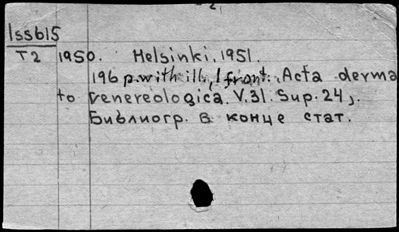 2
Iss615
T2 1950. Helsinki, 1951.
196 p. with ill., 1 front. Acta derma
to venereologica. V.31. Sup. 24).
Библиогр. в конце стат.